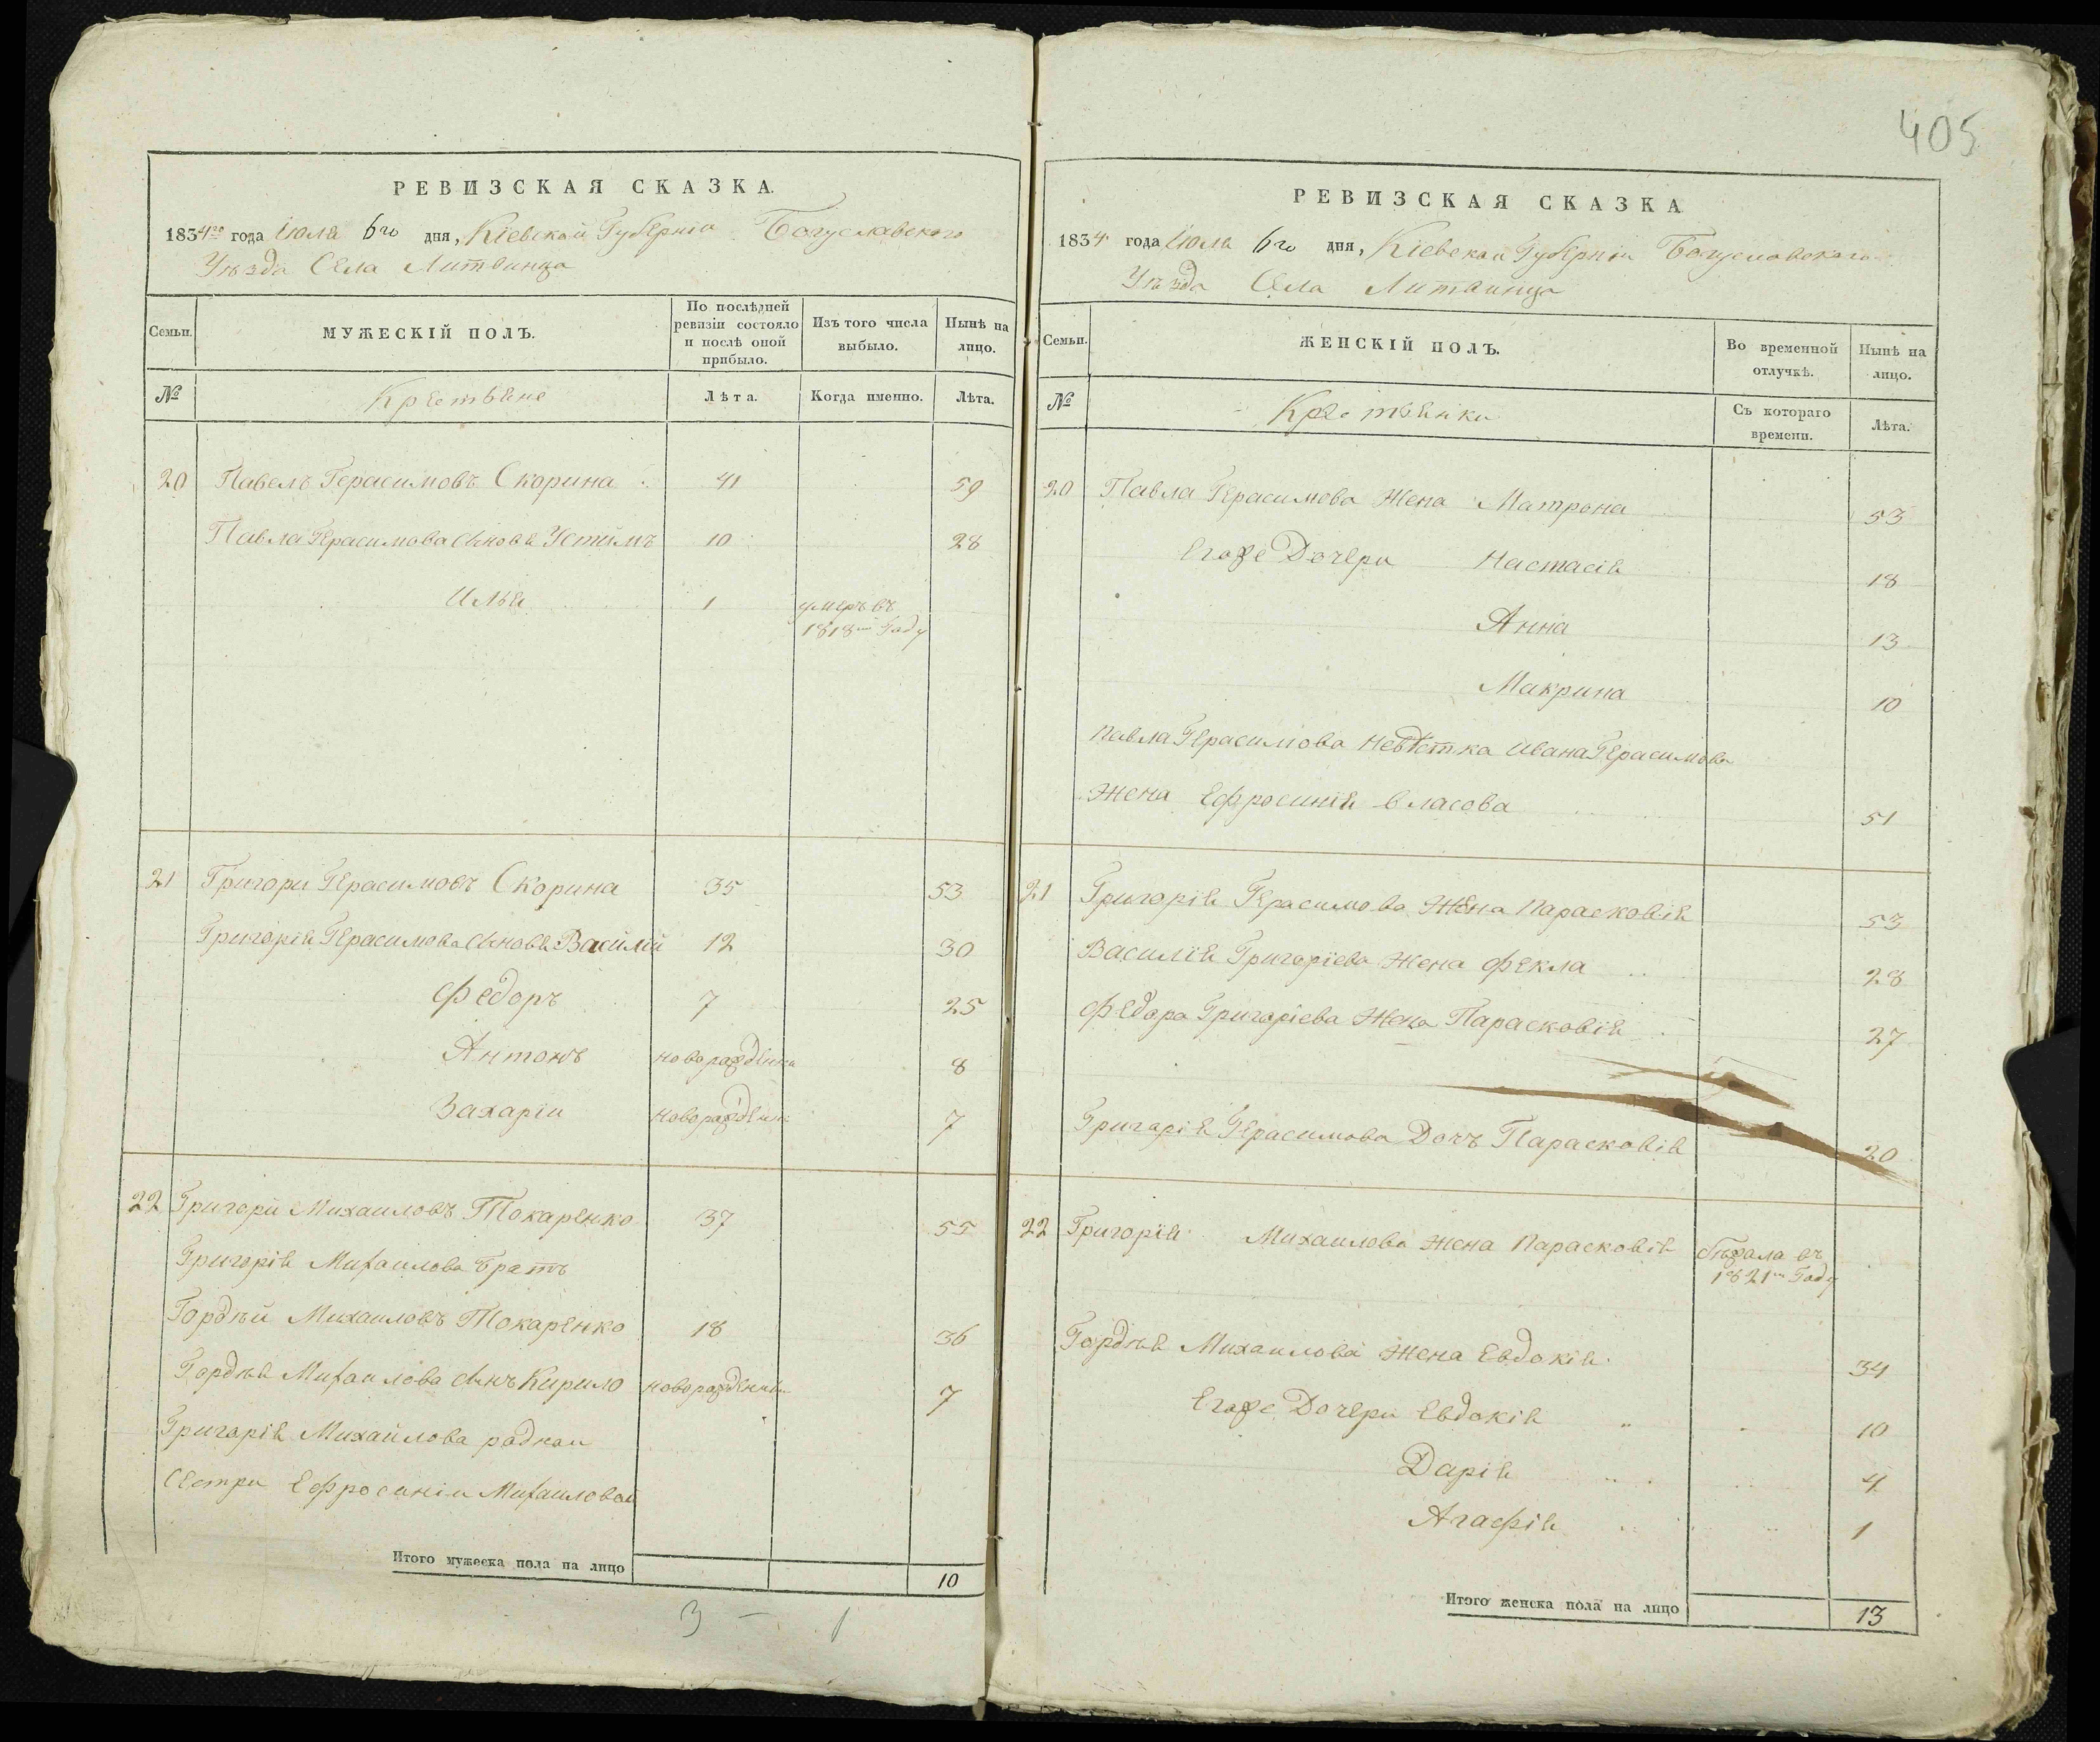 405
РЕВИЗСКАЯ СКАЗКА.
1834го года Июля 6го дня, Кіевской Губерніи Богуславского
Уѣзда Села Литвинца
Семьи.
МУЖЕСКІЙ ПОЛЪ.
По послѣдней ревизіи состояло и послѣ оной прибыло.
Изъ того числа выбыло.
Нынѣ на лицо.
№
Крестяне
Лѣта.
Когда именно.
Лѣта.
20 Павелъ Герасимовъ Скорина 41 59
Павла Герасимова Синовя Устимъ 10 28
Илья 1 умеръ въ
1818м Году
21 Григори Герасимовъ Скорина 35 53
Григорія Герасимова Синовя Василій 12 30
Федоръ 7 25
Антонъ 8
Захаріи 7
22 Григори Михаиловъ Токаренко 37 55
Григорія Михаилова Братъ
Гордѣй Михаиловъ Токаренко 18 36
Гордѣя Михаилова Синъ Кирило 7
Григорія Михайлова родной
Сестри Ефросиніи Михаиловой
Итого мужеска пола на лицо 10
3 — 1
РЕВИЗСКАЯ СКАЗКА
1834 года Июля 6го дня, Кіевской Губерніи Богуславского
Уѣзда Села Литвинца
Семьи.
ЖЕНСКІЙ ПОЛЪ.
Во временной отлучкѣ.
Нынѣ на лицо.
№
Крестянки
Съ котораго времени.
Лѣта.
20 Павла Герасимова Жена Матрона 53
Егоже Дочери Настасія 18
Анна 13
Макрина 10
Павла Герасимова Невѣстка Ивана Герасимова
Жена Ефросинія Власова 51
21 Григорія Герасимова Жена Парасковія 53
Василія Григоріева Жена Фекла 28
Федора Григоріева Жена Парасковія 27
Григорія Герасимова Дочь Парасковія 20
22 Григорія Михаилова Жена Парасковія бѣжала въ
1821м Году
Гордѣя Михаилова Жена Евдокія 34
Егоже Дочери Евдокія 10
Дарія 4
Агафія 1
Итого женска пола на лицо 13